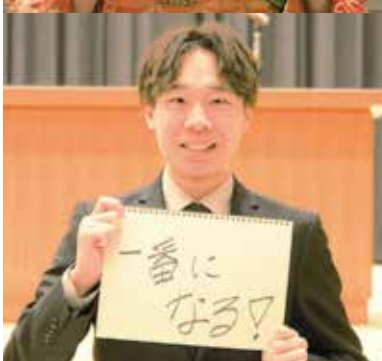 一番に
なる!